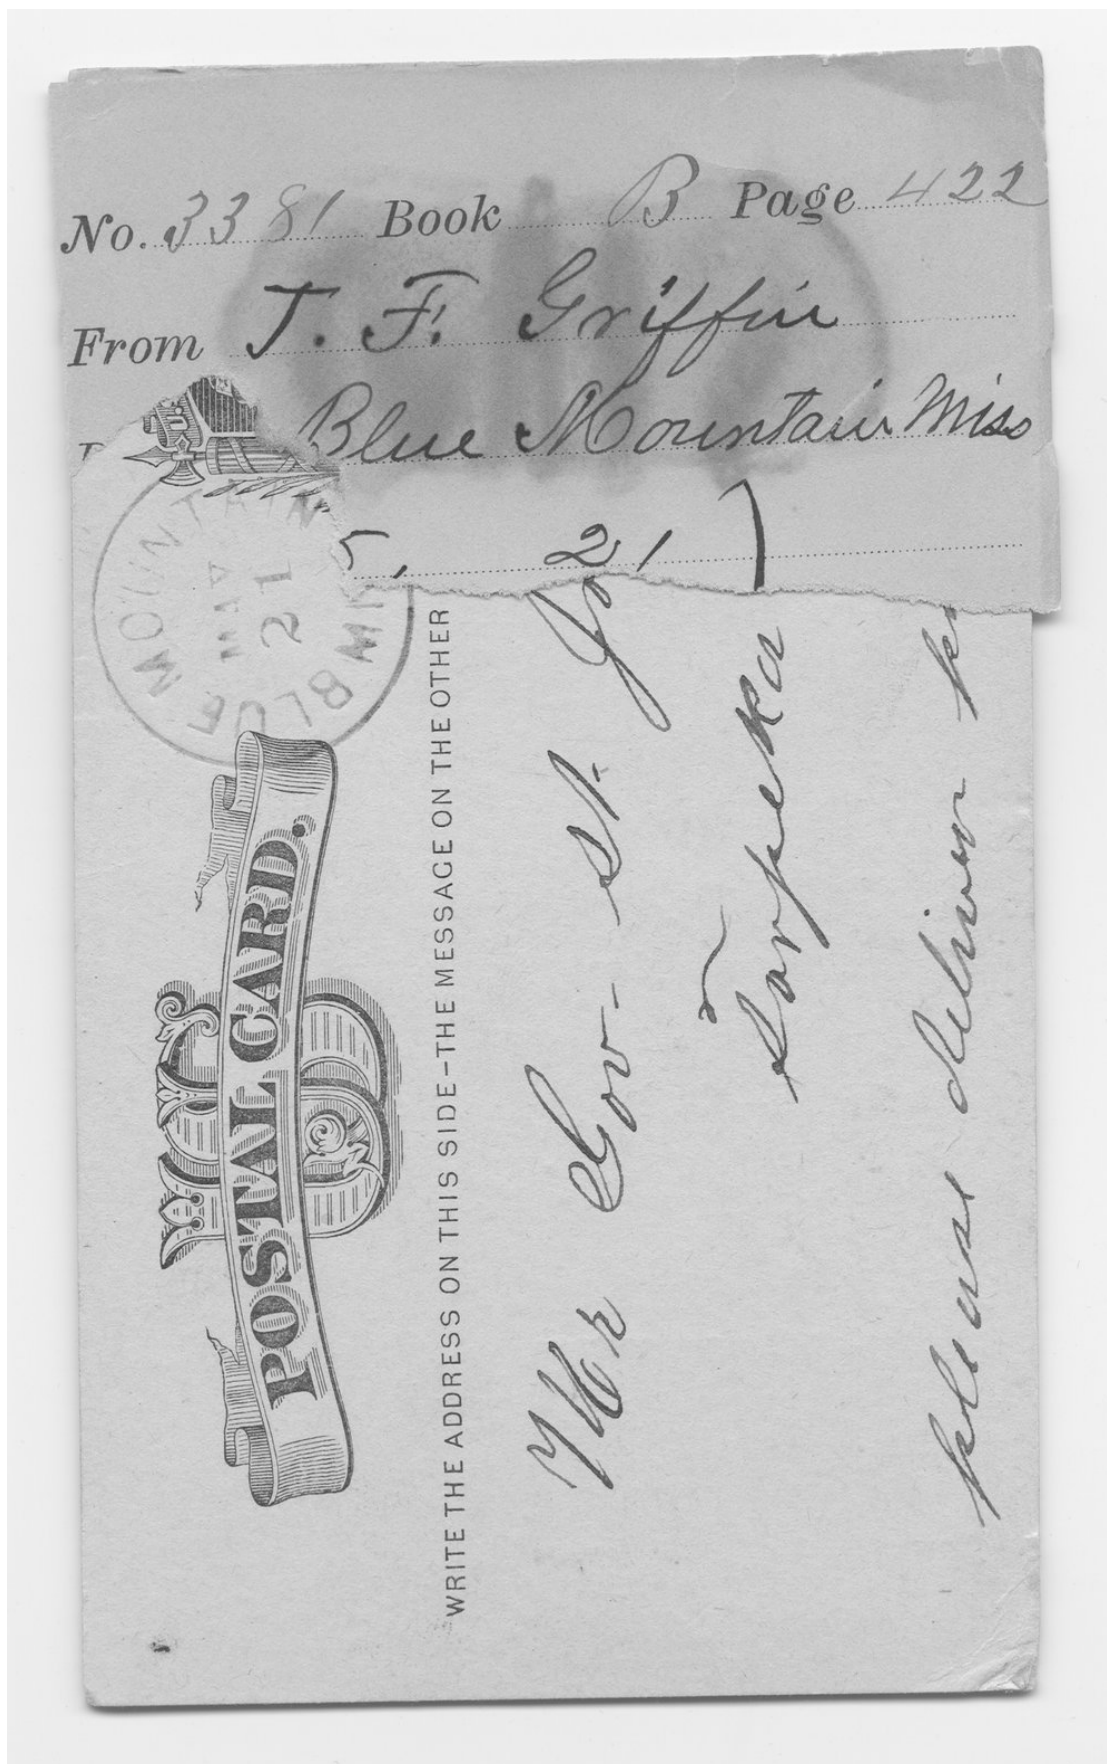 No. 3381 Book B Page 422
From T. F. Griffin
Blue Mountain Miss
5, 21
BLUE MOUNTAIN MISS
MAY
21
POSTAL CARD.
WRITE THE ADDRESS ON THIS SIDE-THE MESSAGE ON THE OTHER
Mr Gov- St. Jo
Torpeka
please deliver